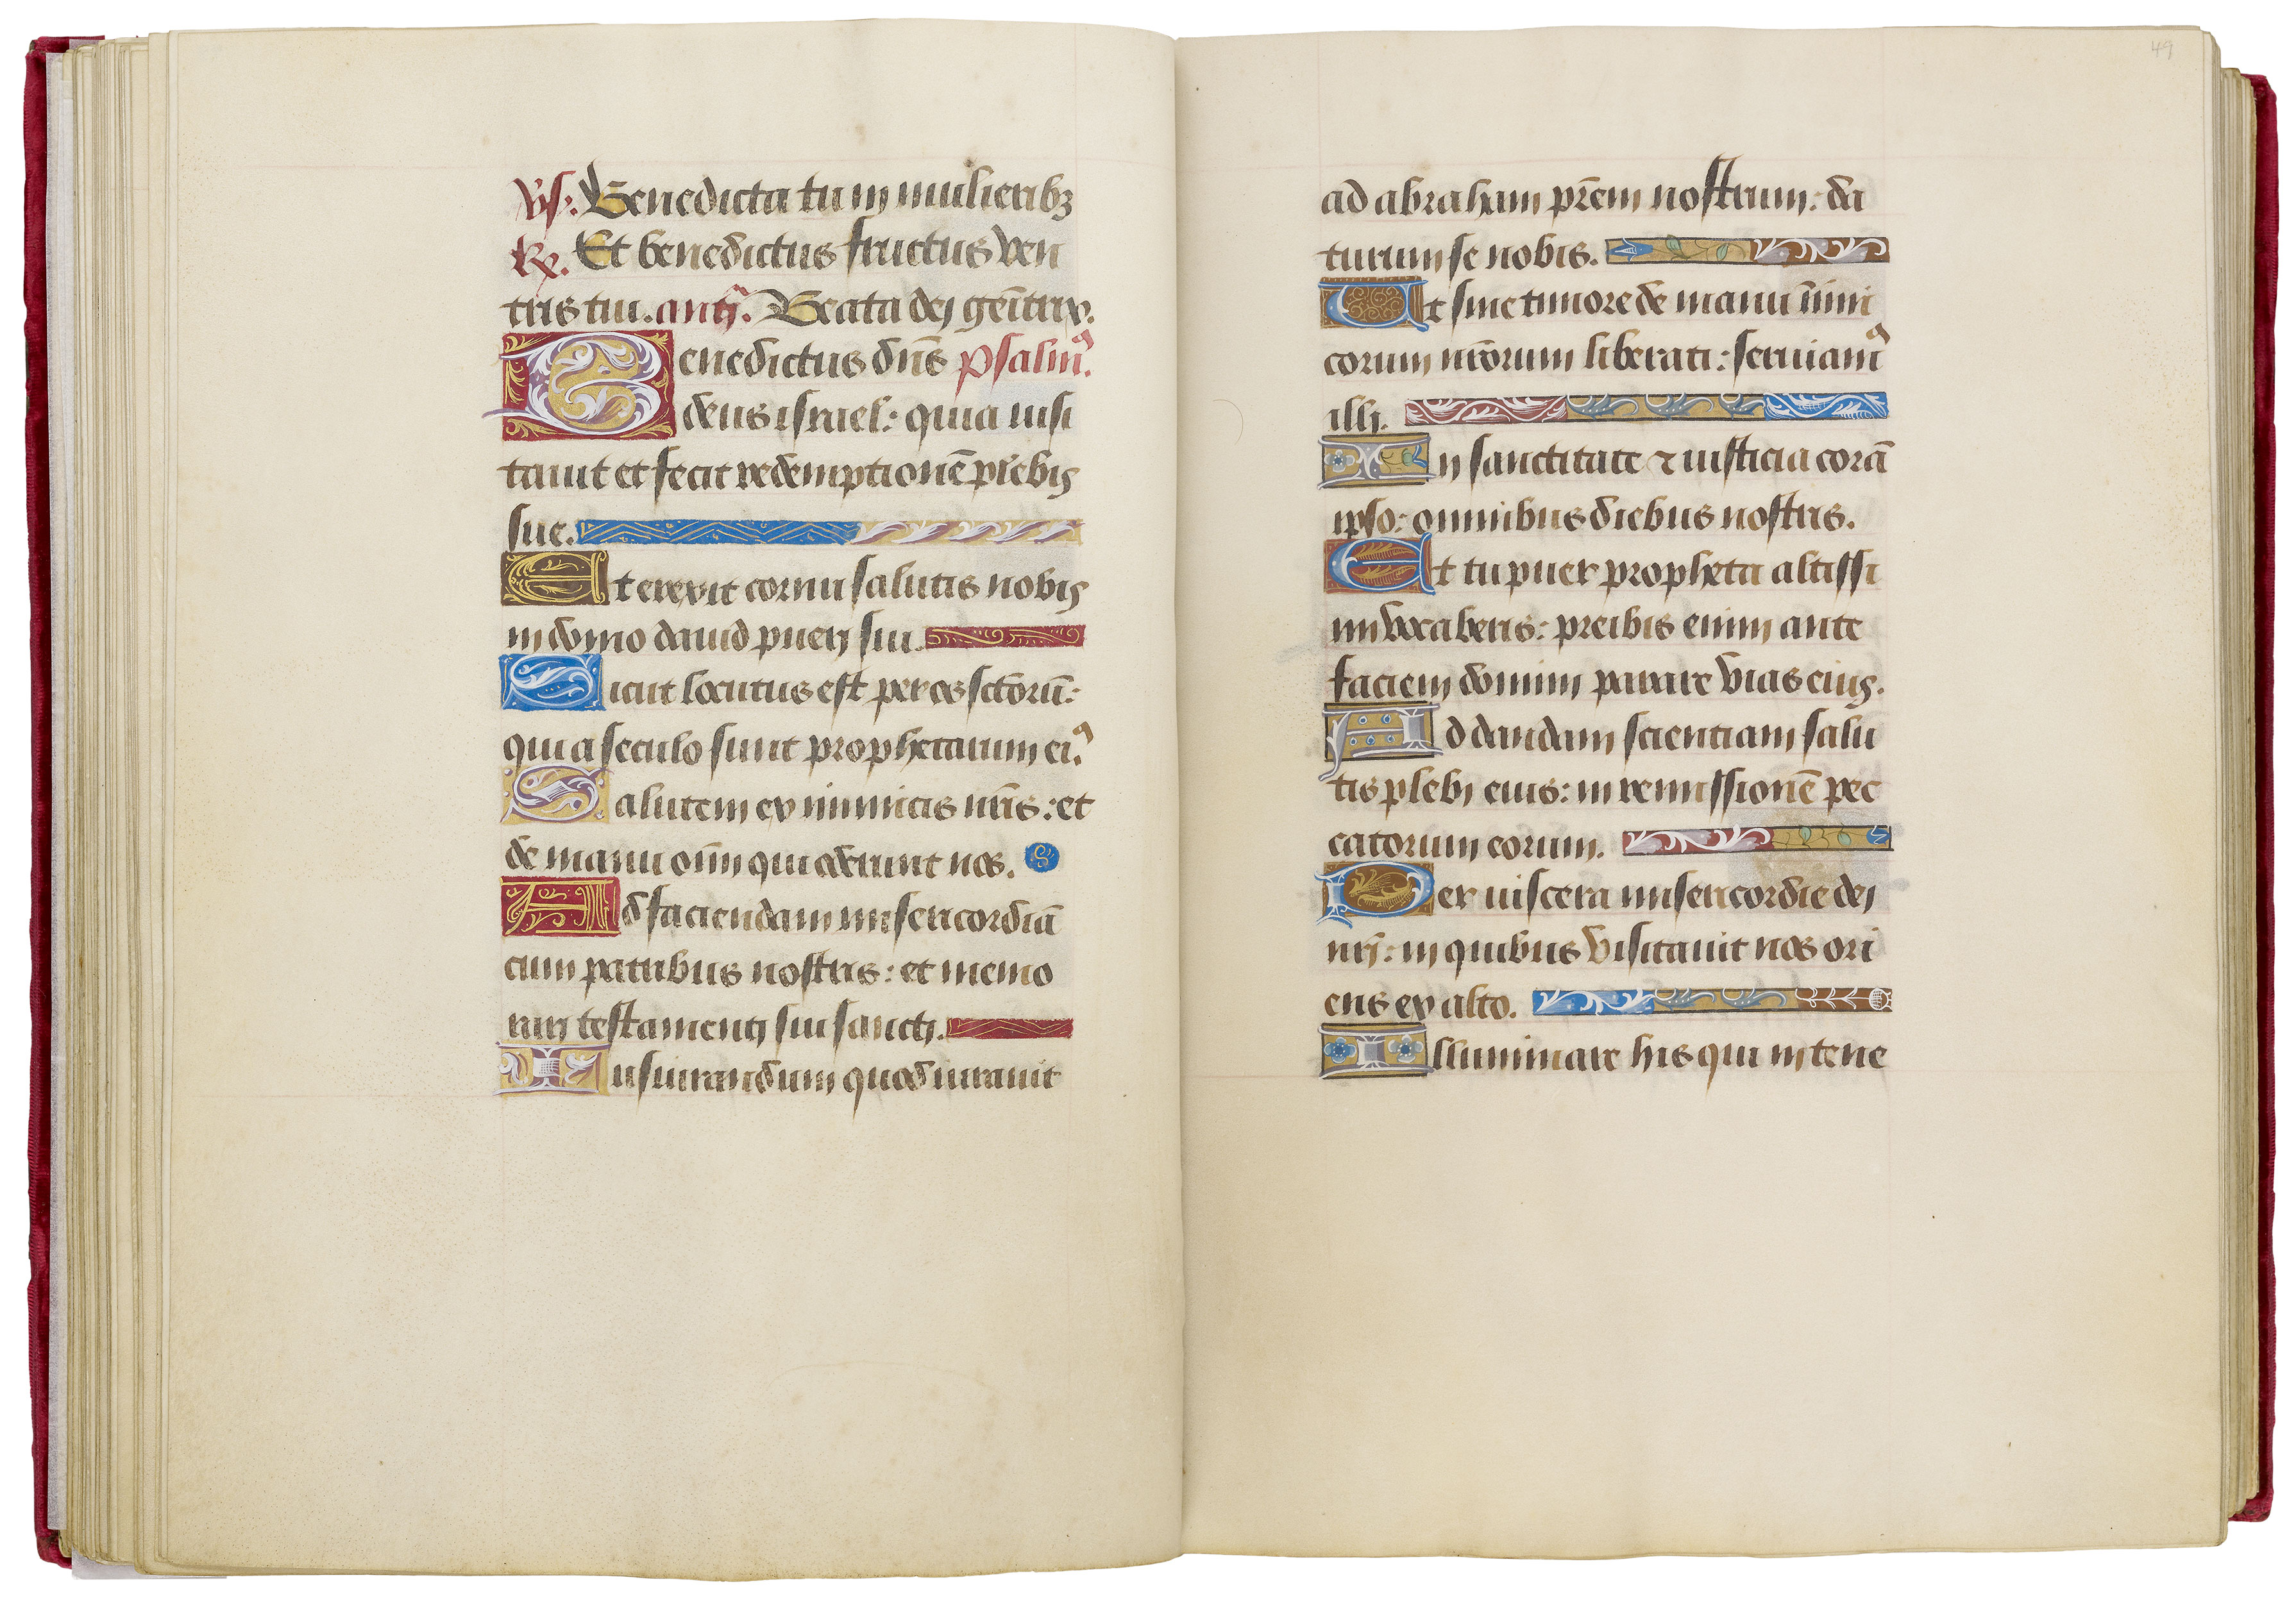 v̄s. Benedicta tu in mulieribꝫ
R̷. Et benedictus fructus ven
tris tui. anth̄. Beata dei gēitrix.
Benedictus dn̄s psalmꝰ.
deus israel: quia uisi
tauit et fecit redemptionē plebis
sue.
Et erexit cornu salutis nobis
in domo dauid pueri sui.
Sicut locutus est per os sctōrū:
qui a seculo sunt prophetarum eiꝰ.
Salutem ex inimicis nr̄is: et
de manu oīm qui oderunt nos.
Ad faciendam misericordiā
cum patribus nostris: et memo
rari testamenti sui sancti.
Iusiurandum quod iurauit
49
ad abraham pr̄em nostrum: da
turum se nobis.
Ut sine timore de manu inimi
corum nr̄orum liberati: seruiamꝰ
illi.
In sanctitate ⁊ iusticia corā
ipso: omnibus diebus nostris.
Et tu puer propheta altissi
mi vocaberis: preibis enim ante
faciem domini parare vias eius.
Ad dandam scientiam salu
tis plebi eius: in remissionē pec
catorum eorum.
Per uiscera misericordie dei
nr̄i: in quibus visitauit nos ori
ens ex alto.
Illuminare his qui in tene